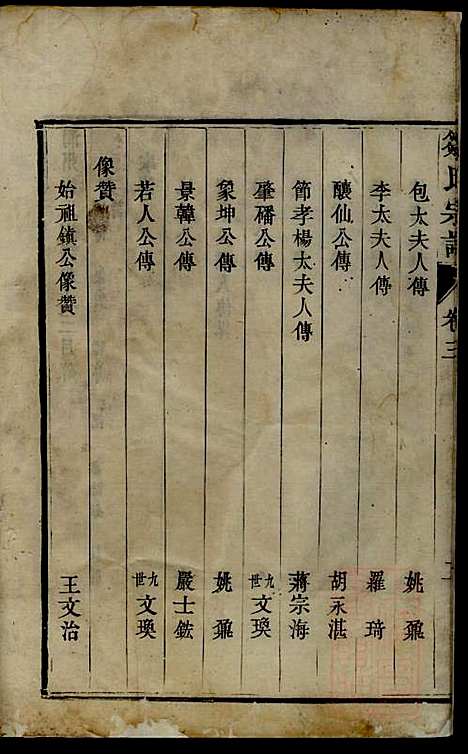 氏宗譜 卷三
包太夫人傳 姚鼐
李太夫人傳 羅琦
釀仙公傳 胡永湛
節孝楊太夫人傳 蔣宗海
肇磻公傳 九世文瑍
象坤公傳 姚鼐
景韓公傳 嚴士鋐
若人公傳 九世文瑍
像贊
始祖鎮公像贊 王文治